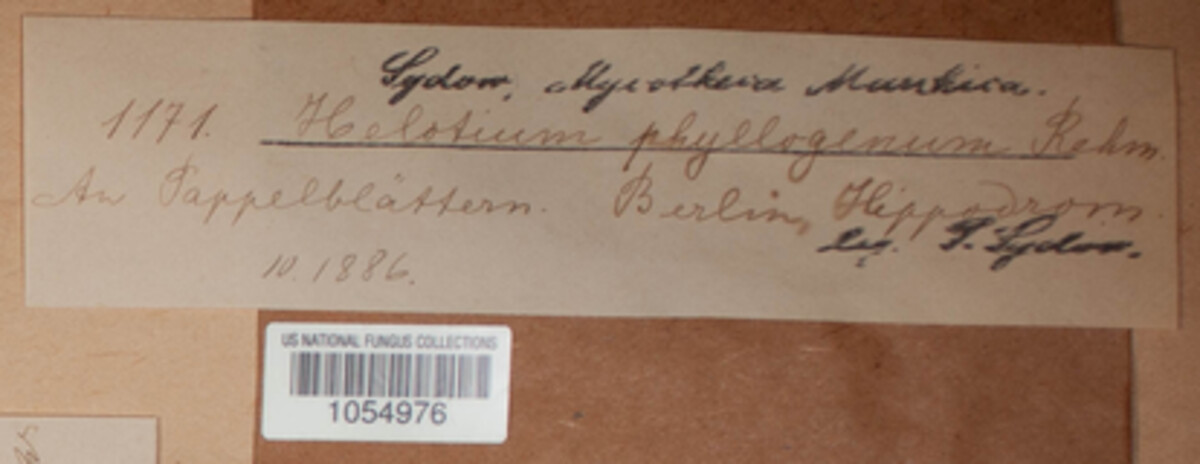 Sydow, Mycotheca Marchica.
1171. Helotium phyllogenum Rehm.
An Pappelblättern. Berlin, Hippodrom.
leg. P. Sydow.
10. 1886.
US NATIONAL FUNGUS COLLECTIONS
1054976